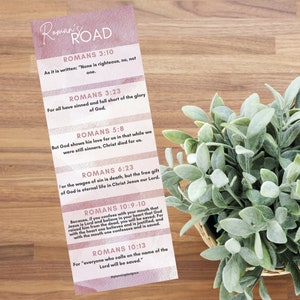 Roman's
ROAD
ROMANS 3:10
As it is written: "None is righteous, no, not
one.
ROMANS 3:23
For all have sinned and fall short of the glory
of God.
ROMANS 5:8
But God shows his love for us in that while we
were still sinners, Christ died for us.
ROMANS 6:23
For the wages of sin is death, but the free gift
of God is eternal life in Christ Jesus our Lord.
ROMANS 10:9-10
Because, if you confess with your mouth that
Jesus is Lord and believe in your heart that God
raised him from the dead, you will be saved. For
with the heart one believes and is justified, and
with the mouth one confesses and is saved.
ROMANS 10:13
For "everyone who calls on the name of the
Lord will be saved."